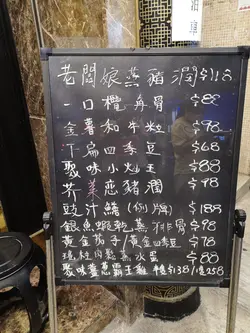 老闆娘蒸豬潤$118
一口欖角骨 $88
金薯和牛粒 $98
干扁四季豆 $68
聚味小炒王 $88
芥菜蔥豬潤 $98
豉汁鱔(例牌) $188
銀魚蝦乾蒸排骨 $98
黃金茄子/黃金四季豆 $78
瑤柱肉鬆蒸水蛋 $88
聚味薑蔥霸王雞 半隻$138/1隻258